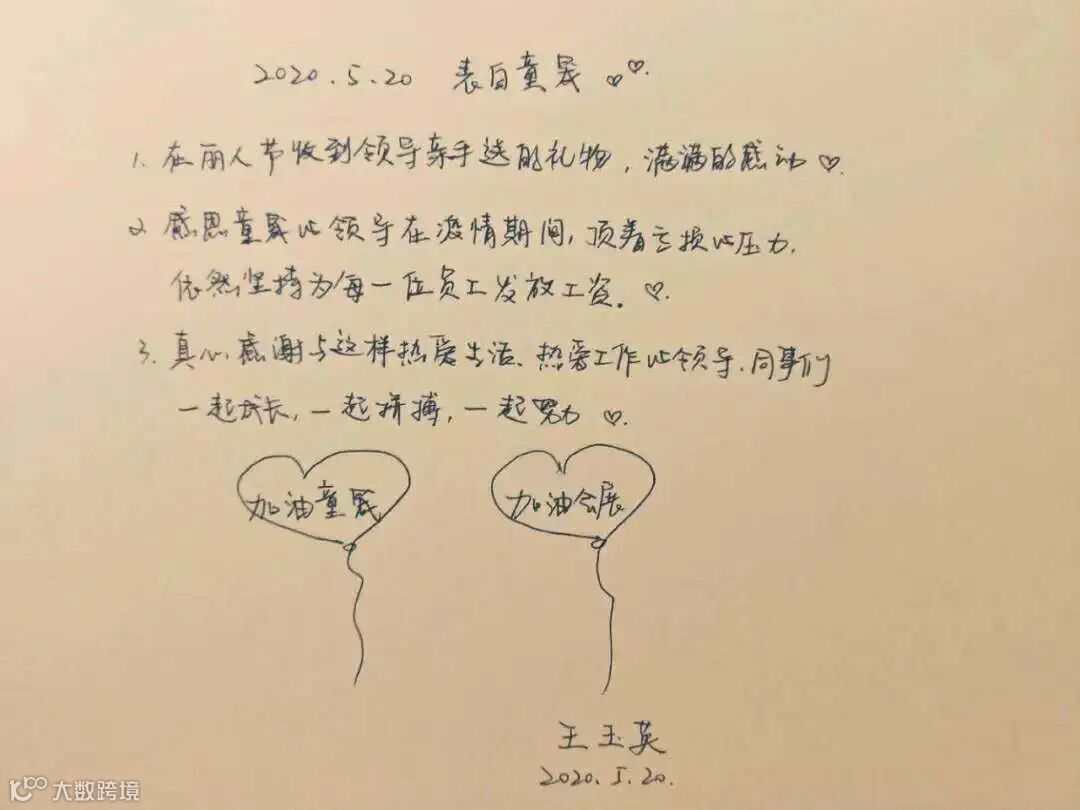 2020.5.20 表白童晟 ♡♡.
1. 在丽人节收到领导亲手选的礼物，满满的感动♡.
2. 感恩童晟的领导在疫情期间，顶着亏损的压力.
依然坚持为每一位员工发放工资. ♡.
3. 真心感谢与这样热爱生活、热爱工作的领导、同事们
一起成长，一起拼搏，一起努力♡.
加油童晟
加油会展
王玉英
2020.5.20.
大数跨境